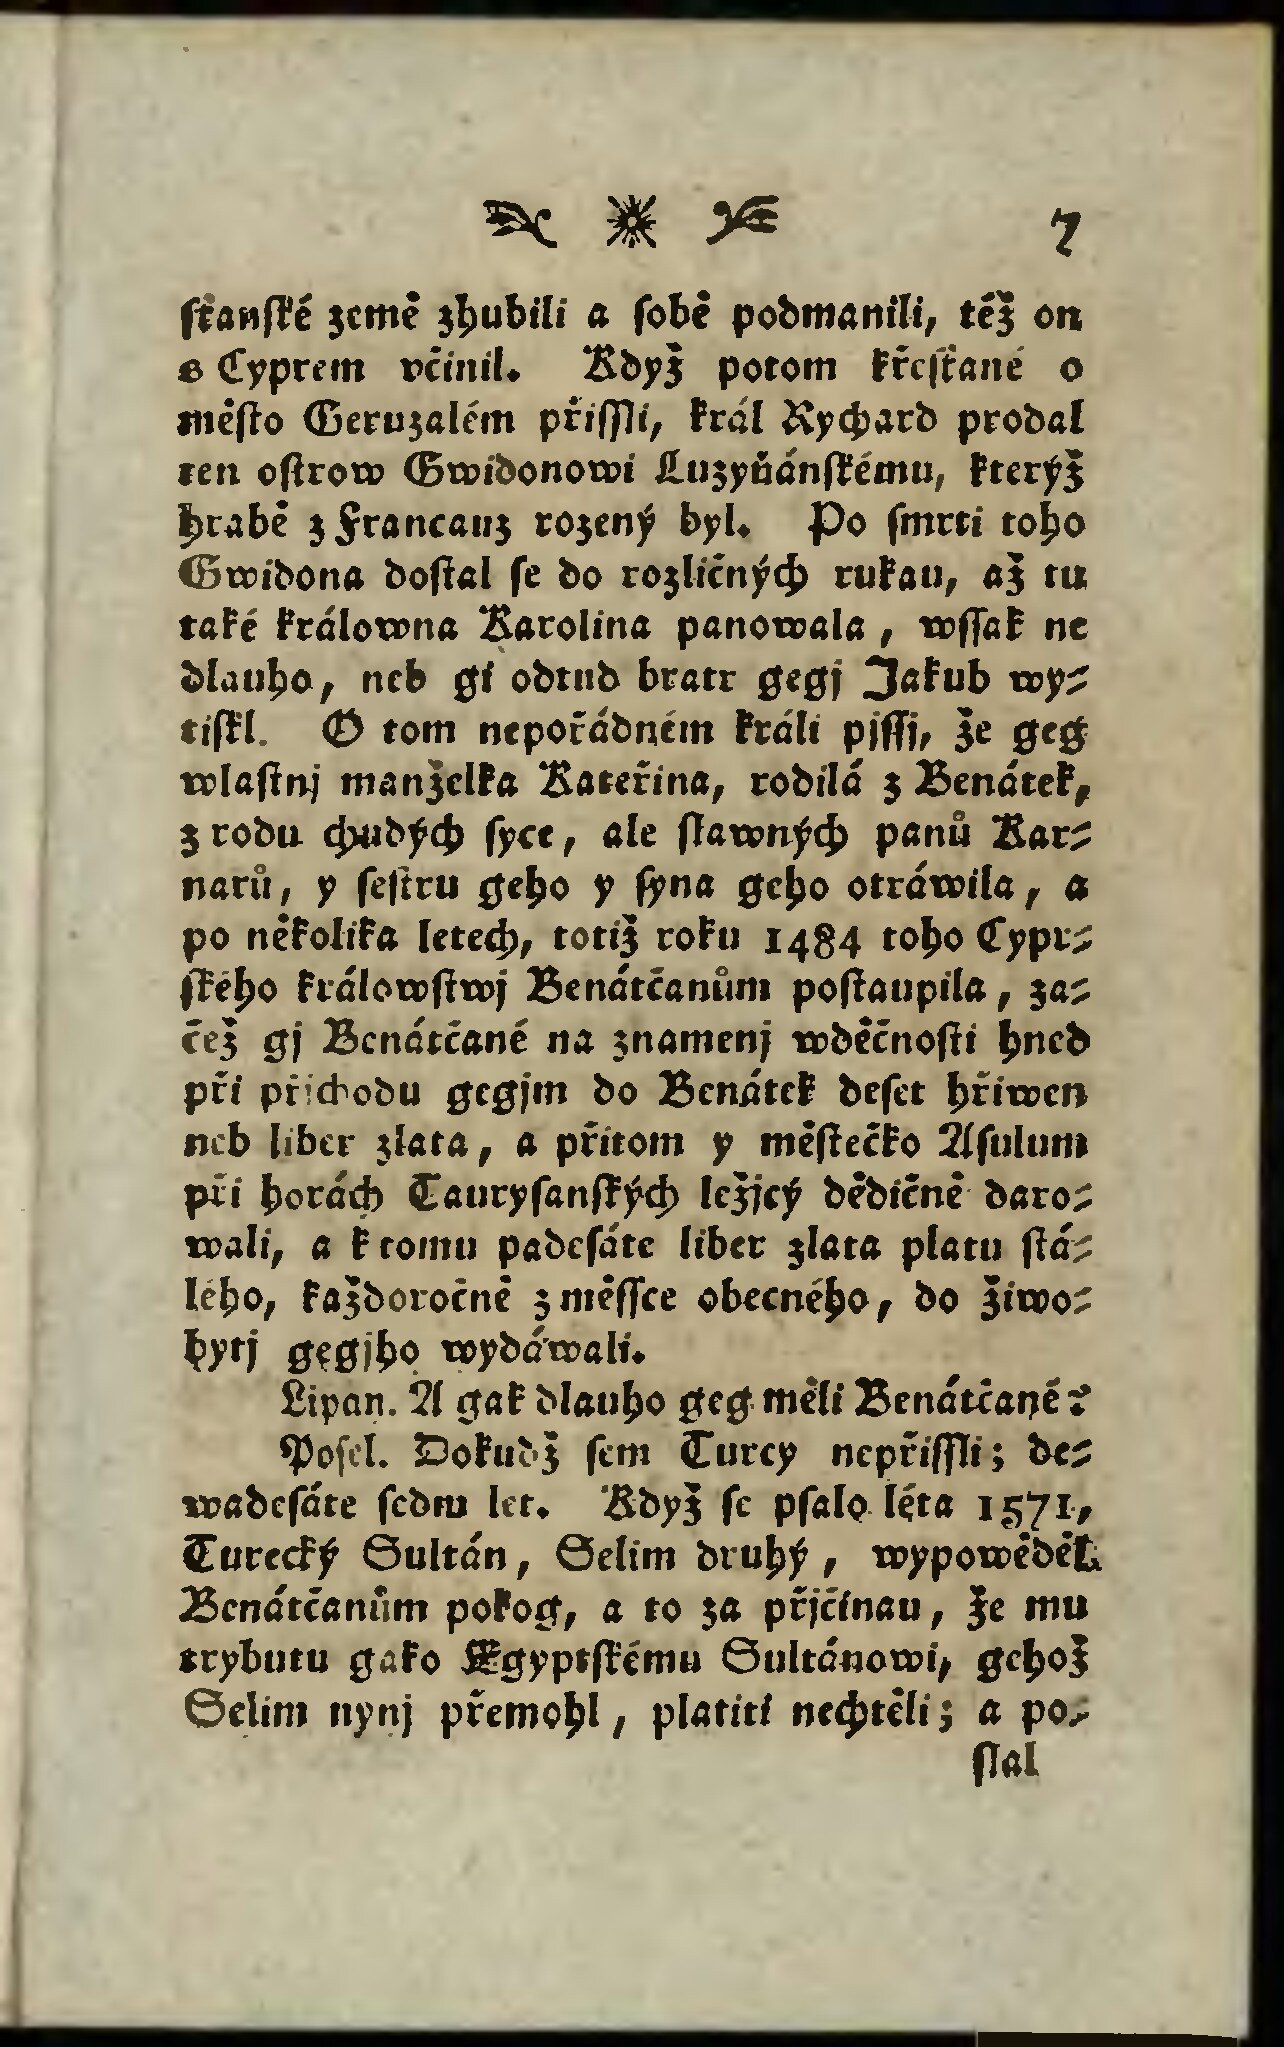 7
sťanské země zhubili a sobě podmanili, též on
s Cyprem včinil. Když potom křesťané o
město Geruzalém přissli, král Rychard prodal
ten ostrow Gwidonowi Luzyňánskému, kterýž
hrabě z Francauz rozený byl. Po smrti toho
Gwidona dostal se do rozličných rukau, až tu
také králowna Karolina panowala, wssak ne
dlauho, neb gi odtud bratr gegj Jakub wy⸗
tiskl. O tom nepořádném králi pjssj, že geg
wlastnj manželka Kateřina, rodilá z Benátek,
z rodu chudých syce, ale slawných panů Kar⸗
narů, y sestru geho y syna geho otráwila, a
po několika letech, totiž roku 1484 toho Cypr⸗
ského králowstwj Benátčanům postaupila, za⸗
čež gj Benátčané na znamenj wděčnosti hned
při přjchodu gegjm do Benátek deset hřiwen
neb liber zlata, a přitom y městečko Asulum
při horách Taurysanských ležjcý dědičně daro⸗
wali, a k tomu padesáte liber zlata platu stá⸗
lého, každoročně z měssce obecného, do žiwo⸗
bytj gegjho wydáwali.
Lipan. A gak dlauho geg měli Benátčané?
Posel. Dokudž sem Turcy nepřissli; de⸗
wadesáte sedm let. Když se psalo léta 1571,
Turecký Sultán, Selim druhý, wypowěděl
Benátčanům pokog, a to za přjčinau, že mu
trybutu gako Ægyptskému Sultánowi, gehož
Selim nynj přemohl, platiti nechtěli; a po⸗
slal